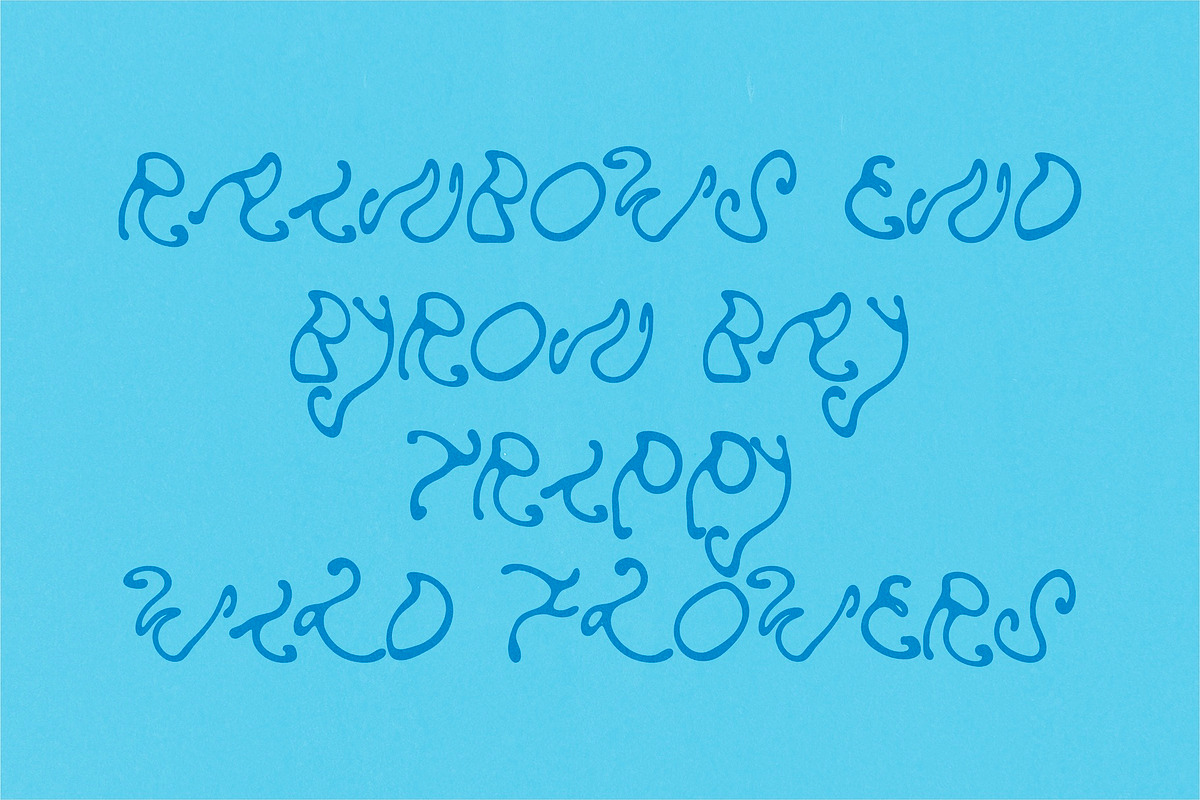 RAINBOWS END
BYRON BAY
TRIPPY
WILD FLOWERS